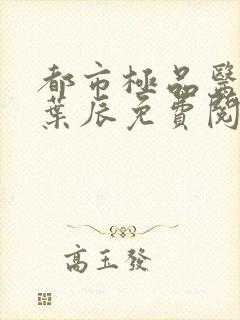 都市極品醫
葉辰免費閱
高玉發